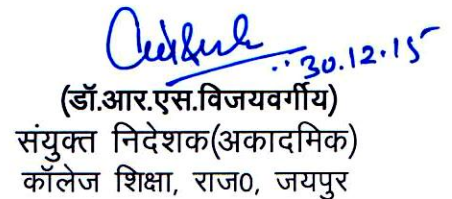 30.12.15
(डॉ.आर.एस.विजयवर्गीय)
संयुक्त निदेशक(अकादमिक)
कॉलेज शिक्षा, राज0, जयपुर